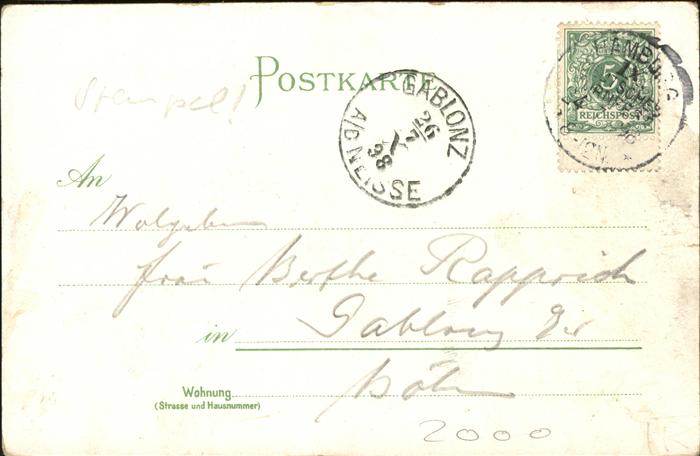 POSTKARTE
Stempel!
GABLONZ
26
7
98
A/D NEISSE
HAMBURG
5
REICHSPOST
An
Wolgeboren
Frau Berthe Rapprich
in Gablonz
Böhm
Wohnung
(Strasse und Hausnummer)
2000